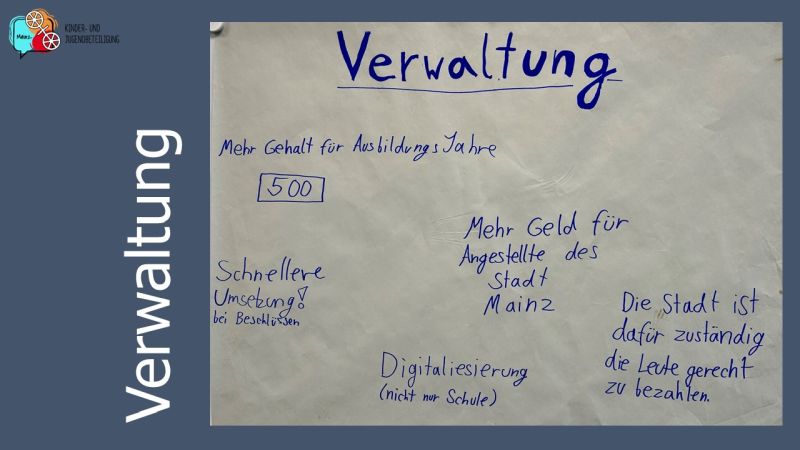 Mainz
KINDER- UND
JUGENDBETEILIGUNG
Verwaltung
Verwaltung
Mehr Gehalt für Ausbildungs Jahre
500
Mehr Geld für
Angestellte des
Stadt
Mainz
Schnellere
Umsetzung!
bei Beschlüssen
Die Stadt ist
dafür zuständig
die Leute gerecht
zu bezahlen.
Digitaliesierung
(nicht nur Schule)